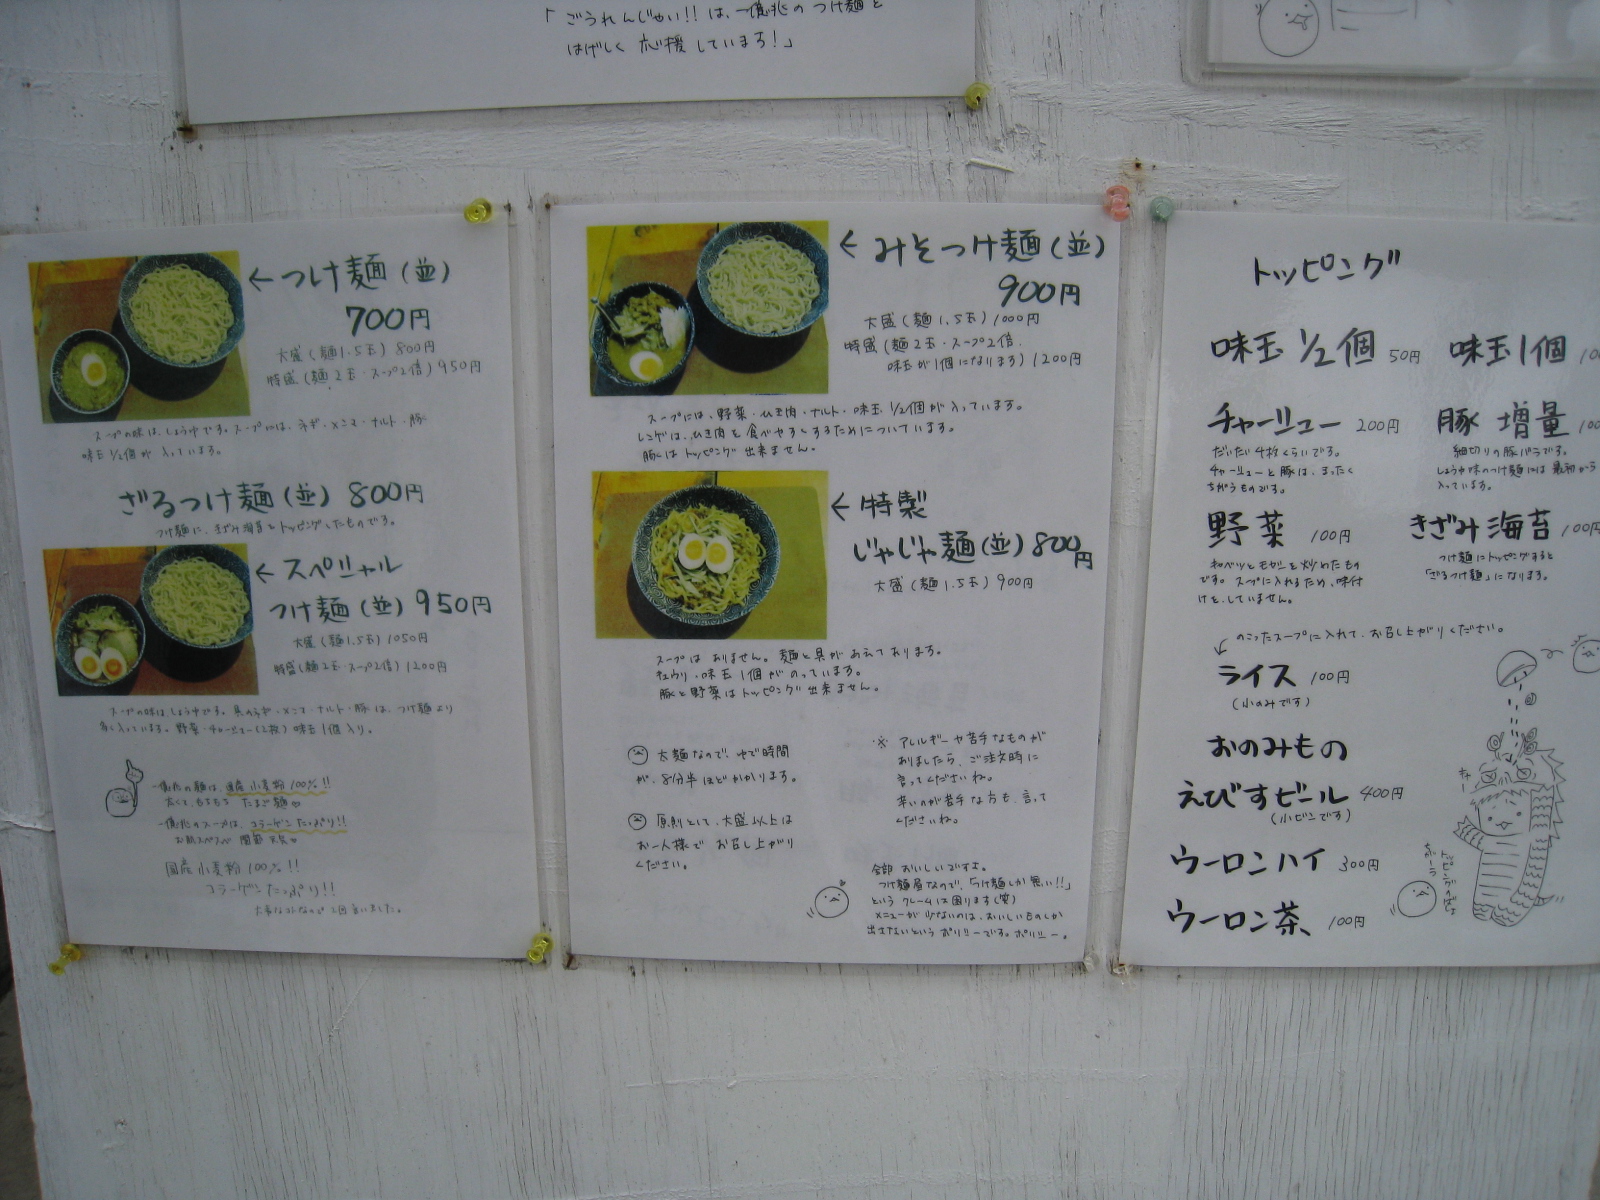 「ごうれんじゃい!!は、一億兆のつけ麺と
はげしく応援しています!」
←つけ麺(並)
700円
大盛(麺1.5玉)800円
特盛(麺2玉・スープ2倍)950円
スープの味は、しょうゆです。スープには、ネギ・メンマ・ナルト・豚
味玉1/2個が入っています。
ざるつけ麺(並)800円
つけ麺に、きざみ海苔をトッピングしたものです。
←スペシャル
つけ麺(並)950円
大盛(麺1.5玉)1050円
特盛(麺2玉・スープ2倍)1200円
スープの味はしょうゆです。具のネギ・メンマ・ナルト・豚は、つけ麺より
多く入っています。野菜・チャーシュー(2枚)味玉1個入り。
一億兆の麺は、国産小麦粉100%!!
太くて、もちもち たまご麺
一億兆のスープは、コラーゲンたっぷり!!
国産小麦粉100%!!
コラーゲンたっぷり!!
大事なコトなので2回言いました。
←みそつけ麺(並)
900円
大盛(麺1.5玉)1000円
特盛(麺2玉・スープ2倍.
味玉が1個になります)1200円
スープには、野菜・ひき肉・ナルト・味玉1/2個が入っています。
レンゲは、ひき肉を食べやすくするためについています。
豚はトッピング出来ません。
←特製
じゃじゃ麺(並)800円
大盛(麺1.5玉)900円
スープはありません。麺と具があえてあります。
キュウリ・味玉1個がのっています。
豚と野菜はトッピング出来ません。
太麺なので、ゆで時間
が、8分半ほどかかります。
原則として、大盛以上は
お一人様でお召し上がり
ください。
※アレルギーや苦手なものが
ありましたら、ご注文時に
言ってくださいね。
辛いのが苦手な方も、言って
くださいね。
全部おいしいですよ。
つけ麺屋なので、「つけ麺しか無い!!」
というクレームは困ります(笑)
メニューが少ないのは、おいしいものしか
出さないというポリシーです。ポリシー。
トッピング
味玉1/2個 50円
味玉1個
チャーシュー 200円
だいたい4枚くらいです。
チャーシューと豚は、まったく
ちがうものです。
豚増量
細切りの豚バラです。
しょうゆ味のつけ麺には最初から
入っています。
野菜 100円
キャベツとモヤシを炒めたもの
です。スープに入れるため、味付
けをしていません。
きざみ海苔 100円
つけ麺にトッピングすると
「ざるつけ麺」になります。
のこったスープに入れて、お召し上がりください。
ライス 100円
(小のみです)
おのみもの
えびすビール 400円
(小ビンです)
ウーロンハイ 300円
ウーロン茶 100円